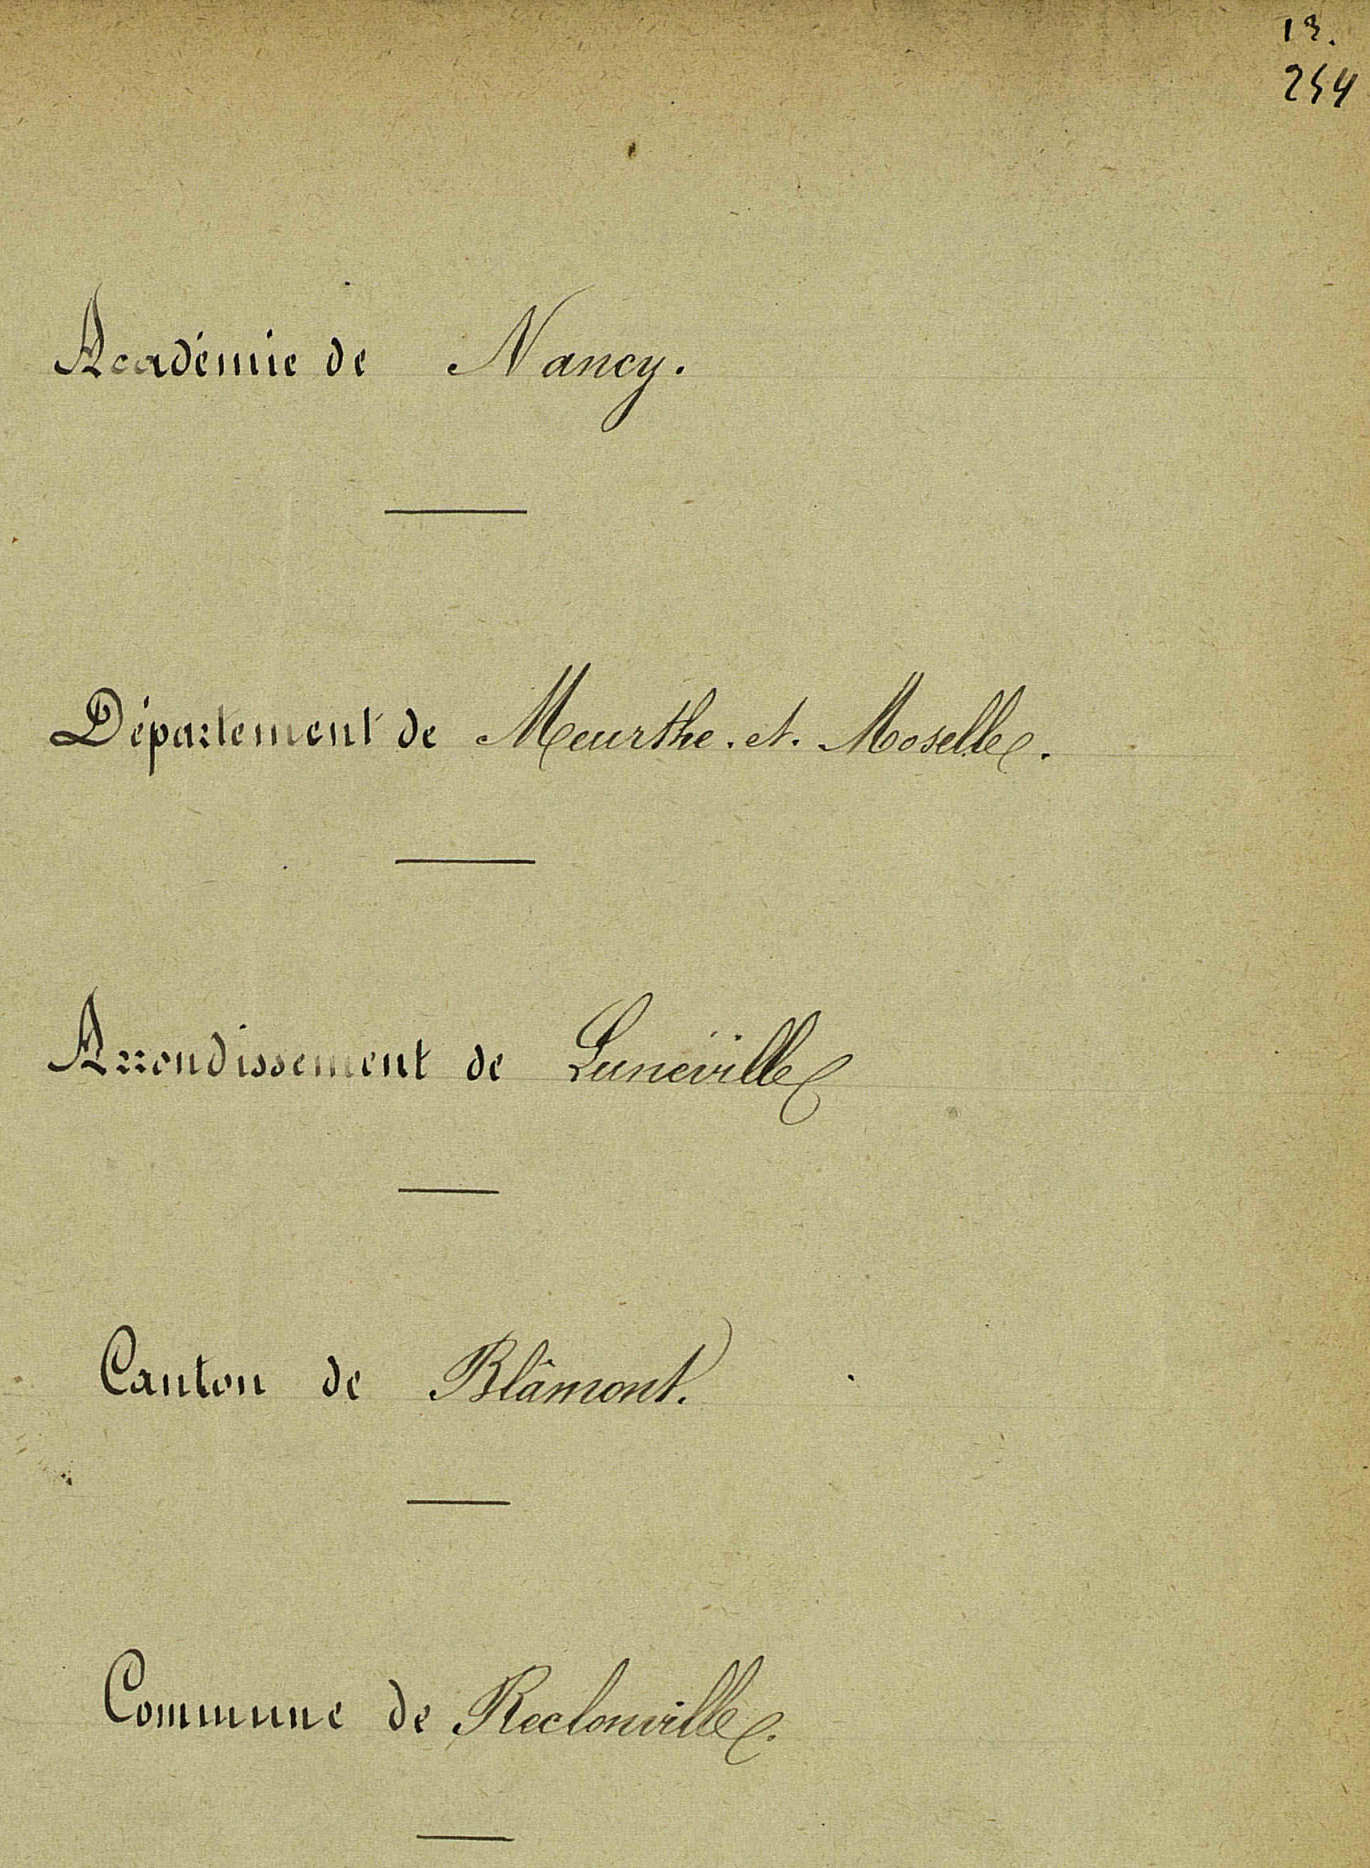 13.
254
Académie de Nancy.
Département de Meurthe. et. Moselle.
Arrondissement de Lunéville
Canton de Blâmont.
Commune de Reclonville.